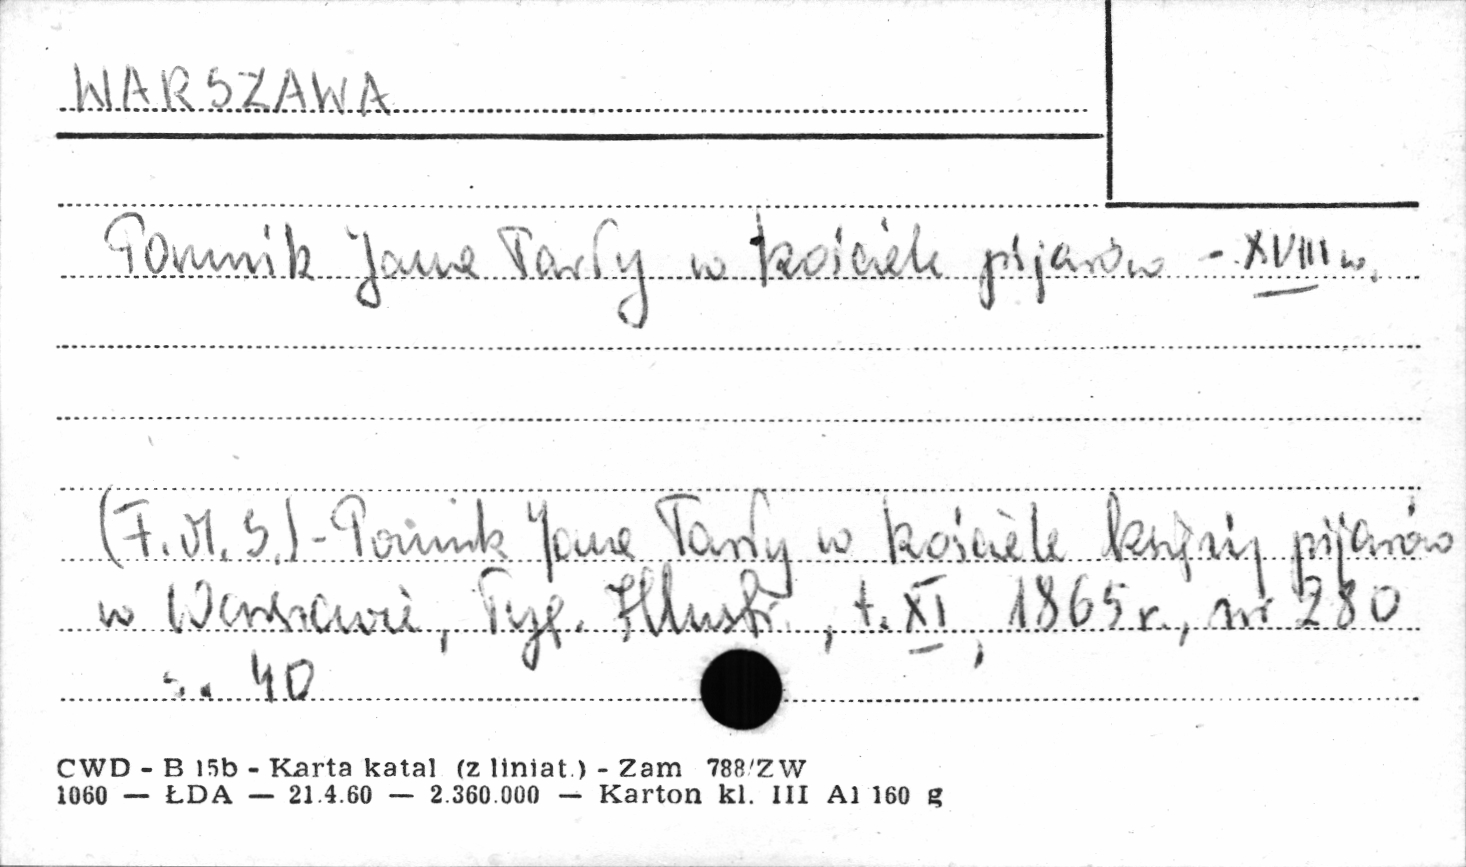 WARSZAWA
Pomnik Jana Tarły w kościele pijarów - XVIII w.
(F.M.S.) - Pomnik Jana Tarły w kościele księży pijarów
w Warszawie, Tyg. Illustr., t. XI, 1865 r., nr 280
s. 40
CWD - B 15b - Karta katal (z liniat.) - Zam 788/ZW
1060 — ŁDA — 21.4.60 — 2.360.000 — Karton kl. III A1 160 g